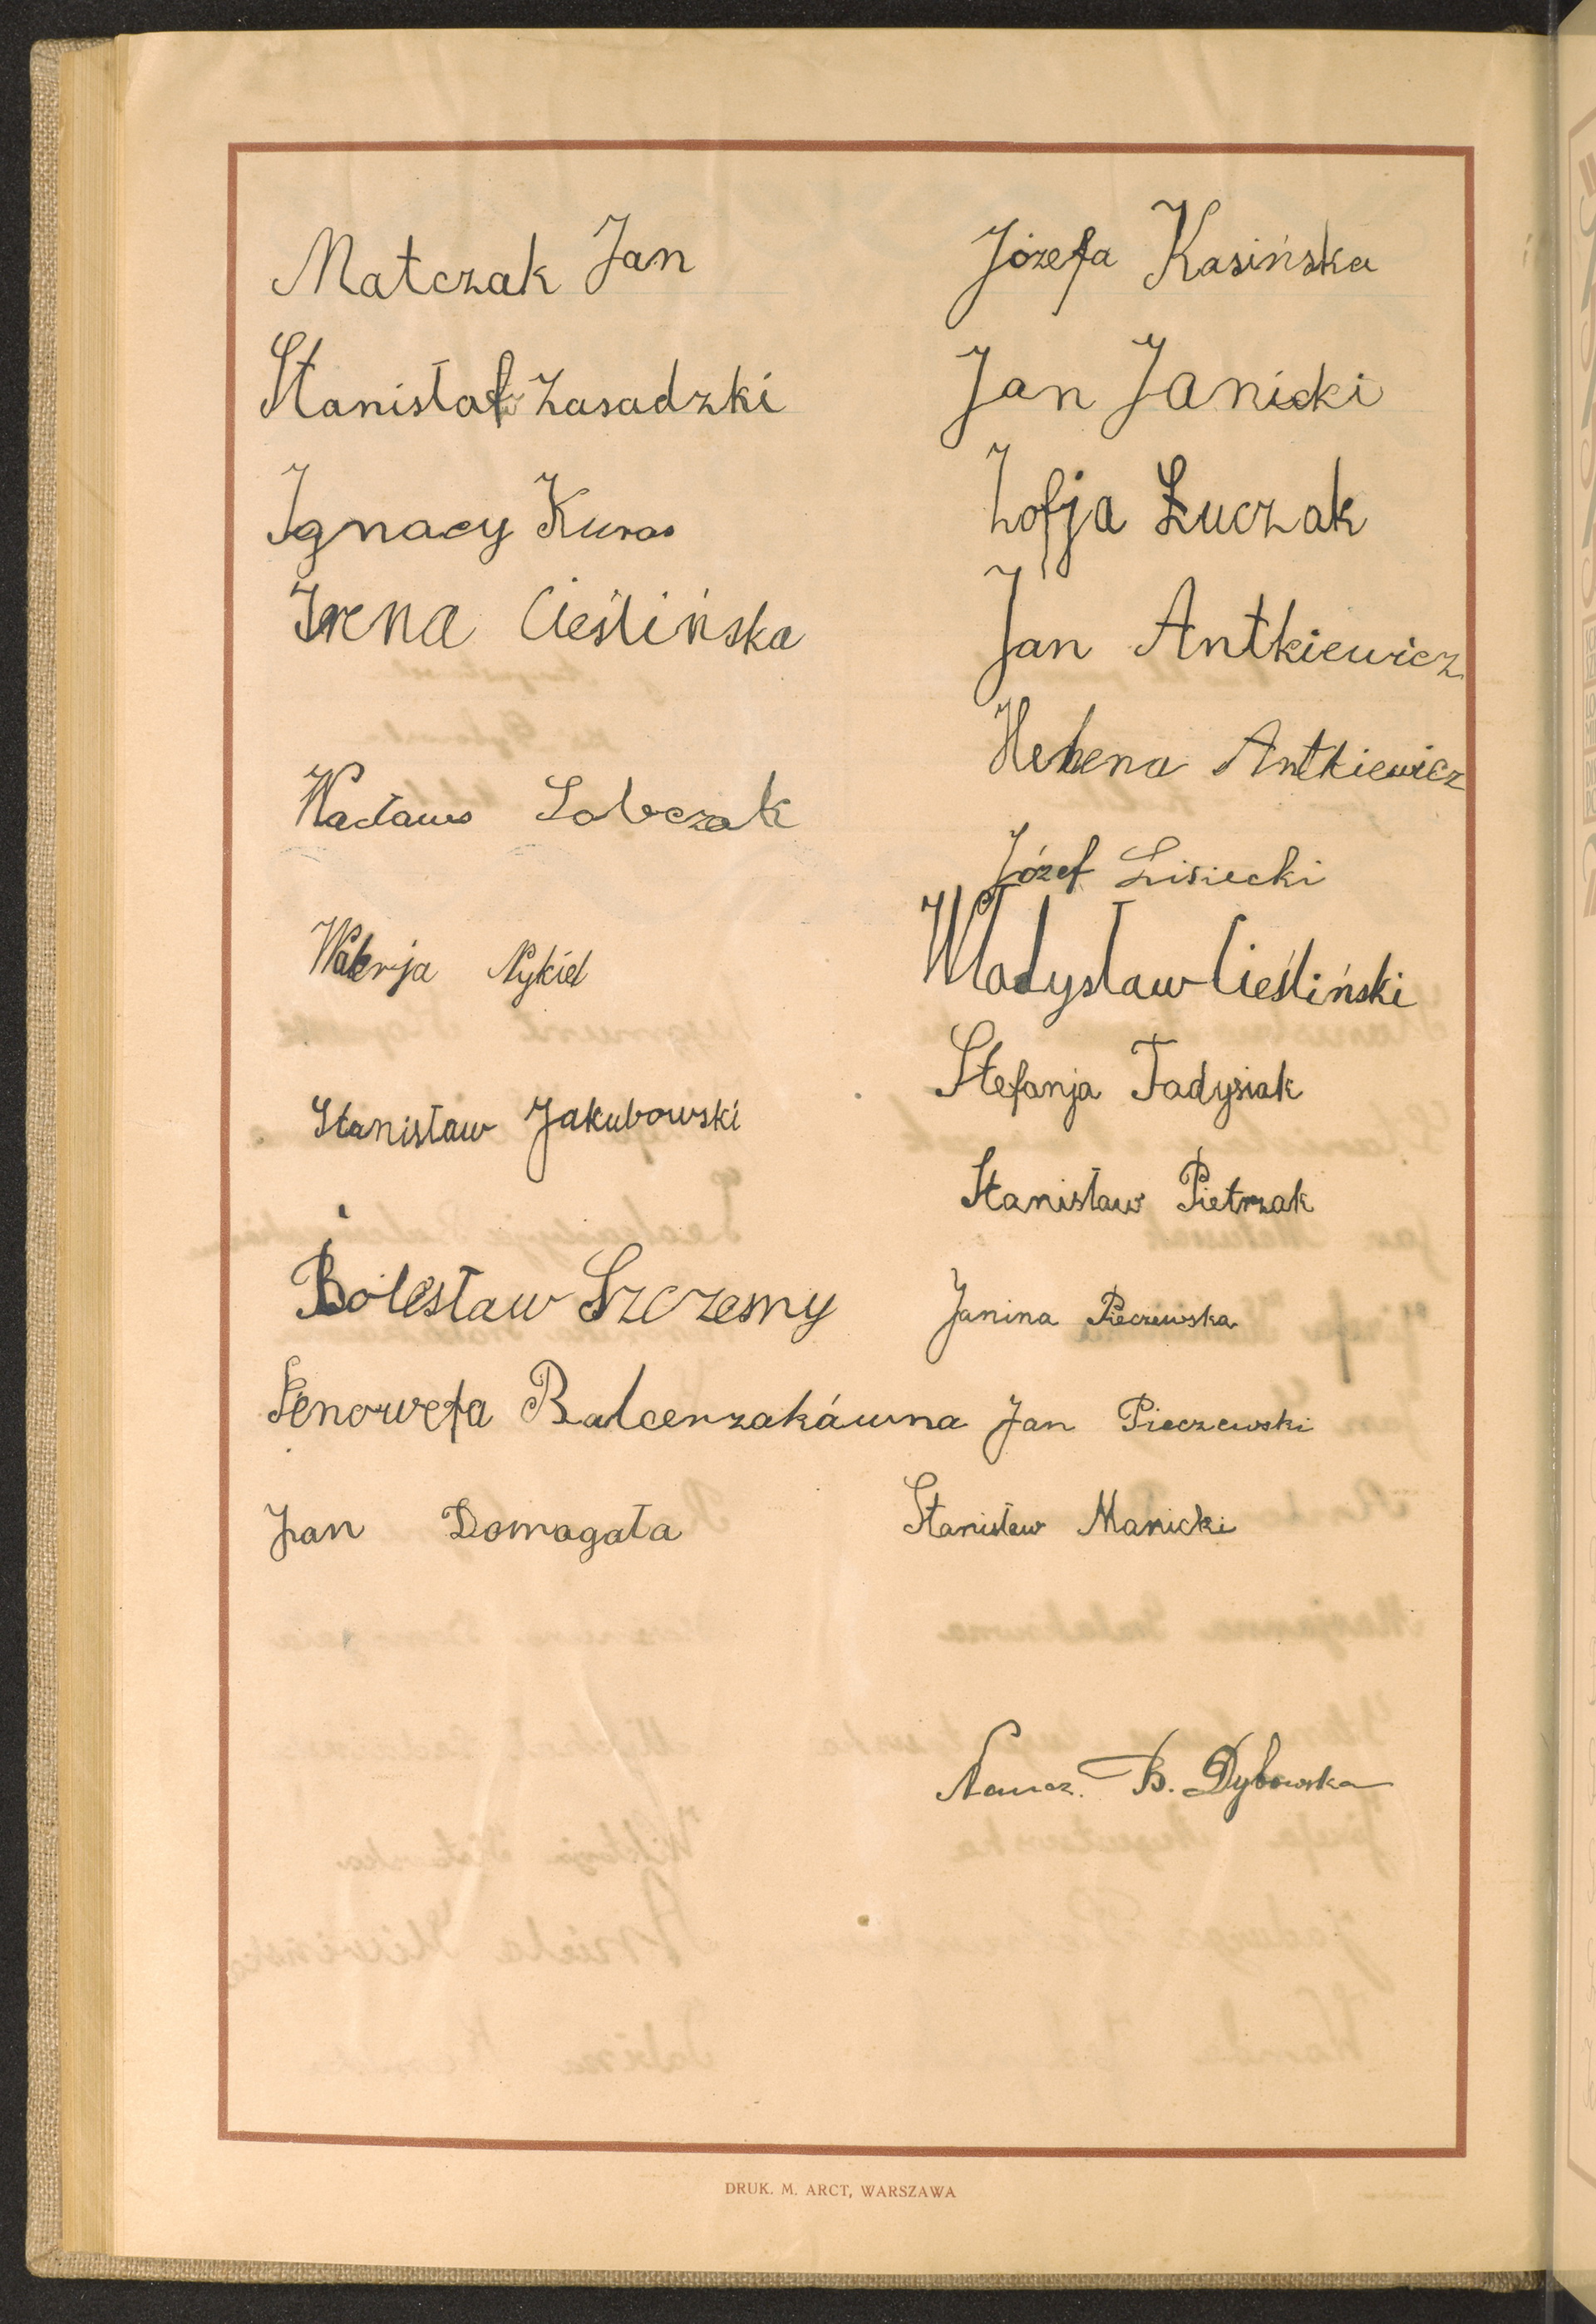 Matczak Jan
Stanisław Zasadzki
Ignacy Kuras
Irena Cieślińska
Wacław Sobczak
Walerja Nykiel
Stanisław Jakubowski
Bolesław Szczesny
Genowefa Balcerzakáwna
Jan Domagała
Józefa Kasińska
Jan Janicki
Zofja Łuczak
Jan Antkiewicz
Helena Antkiewicz
Józef Lisiecki
Władysław Cieśliński
Stefanja Tadysiak
Stanisław Pietrzak
Janina Pieczewska
Jan Pieczewski
Stanisław Manicki
Naucz. B. Dybowska
DRUK. M. ARCT, WARSZAWA